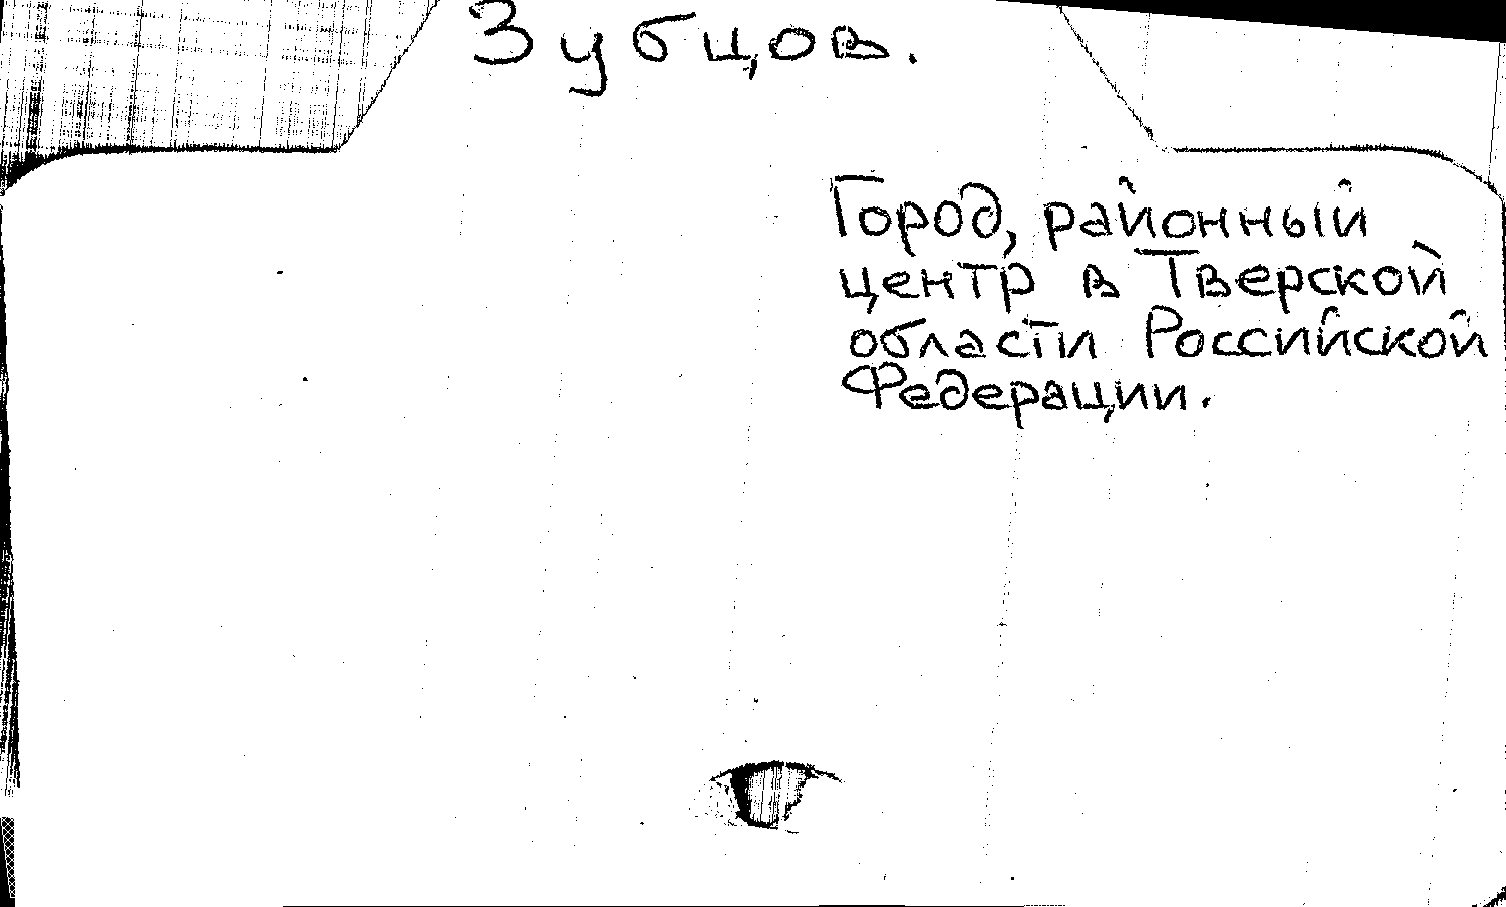 Зубцов.
Город, районный
центр в Тверской
области Российской
Федерации.